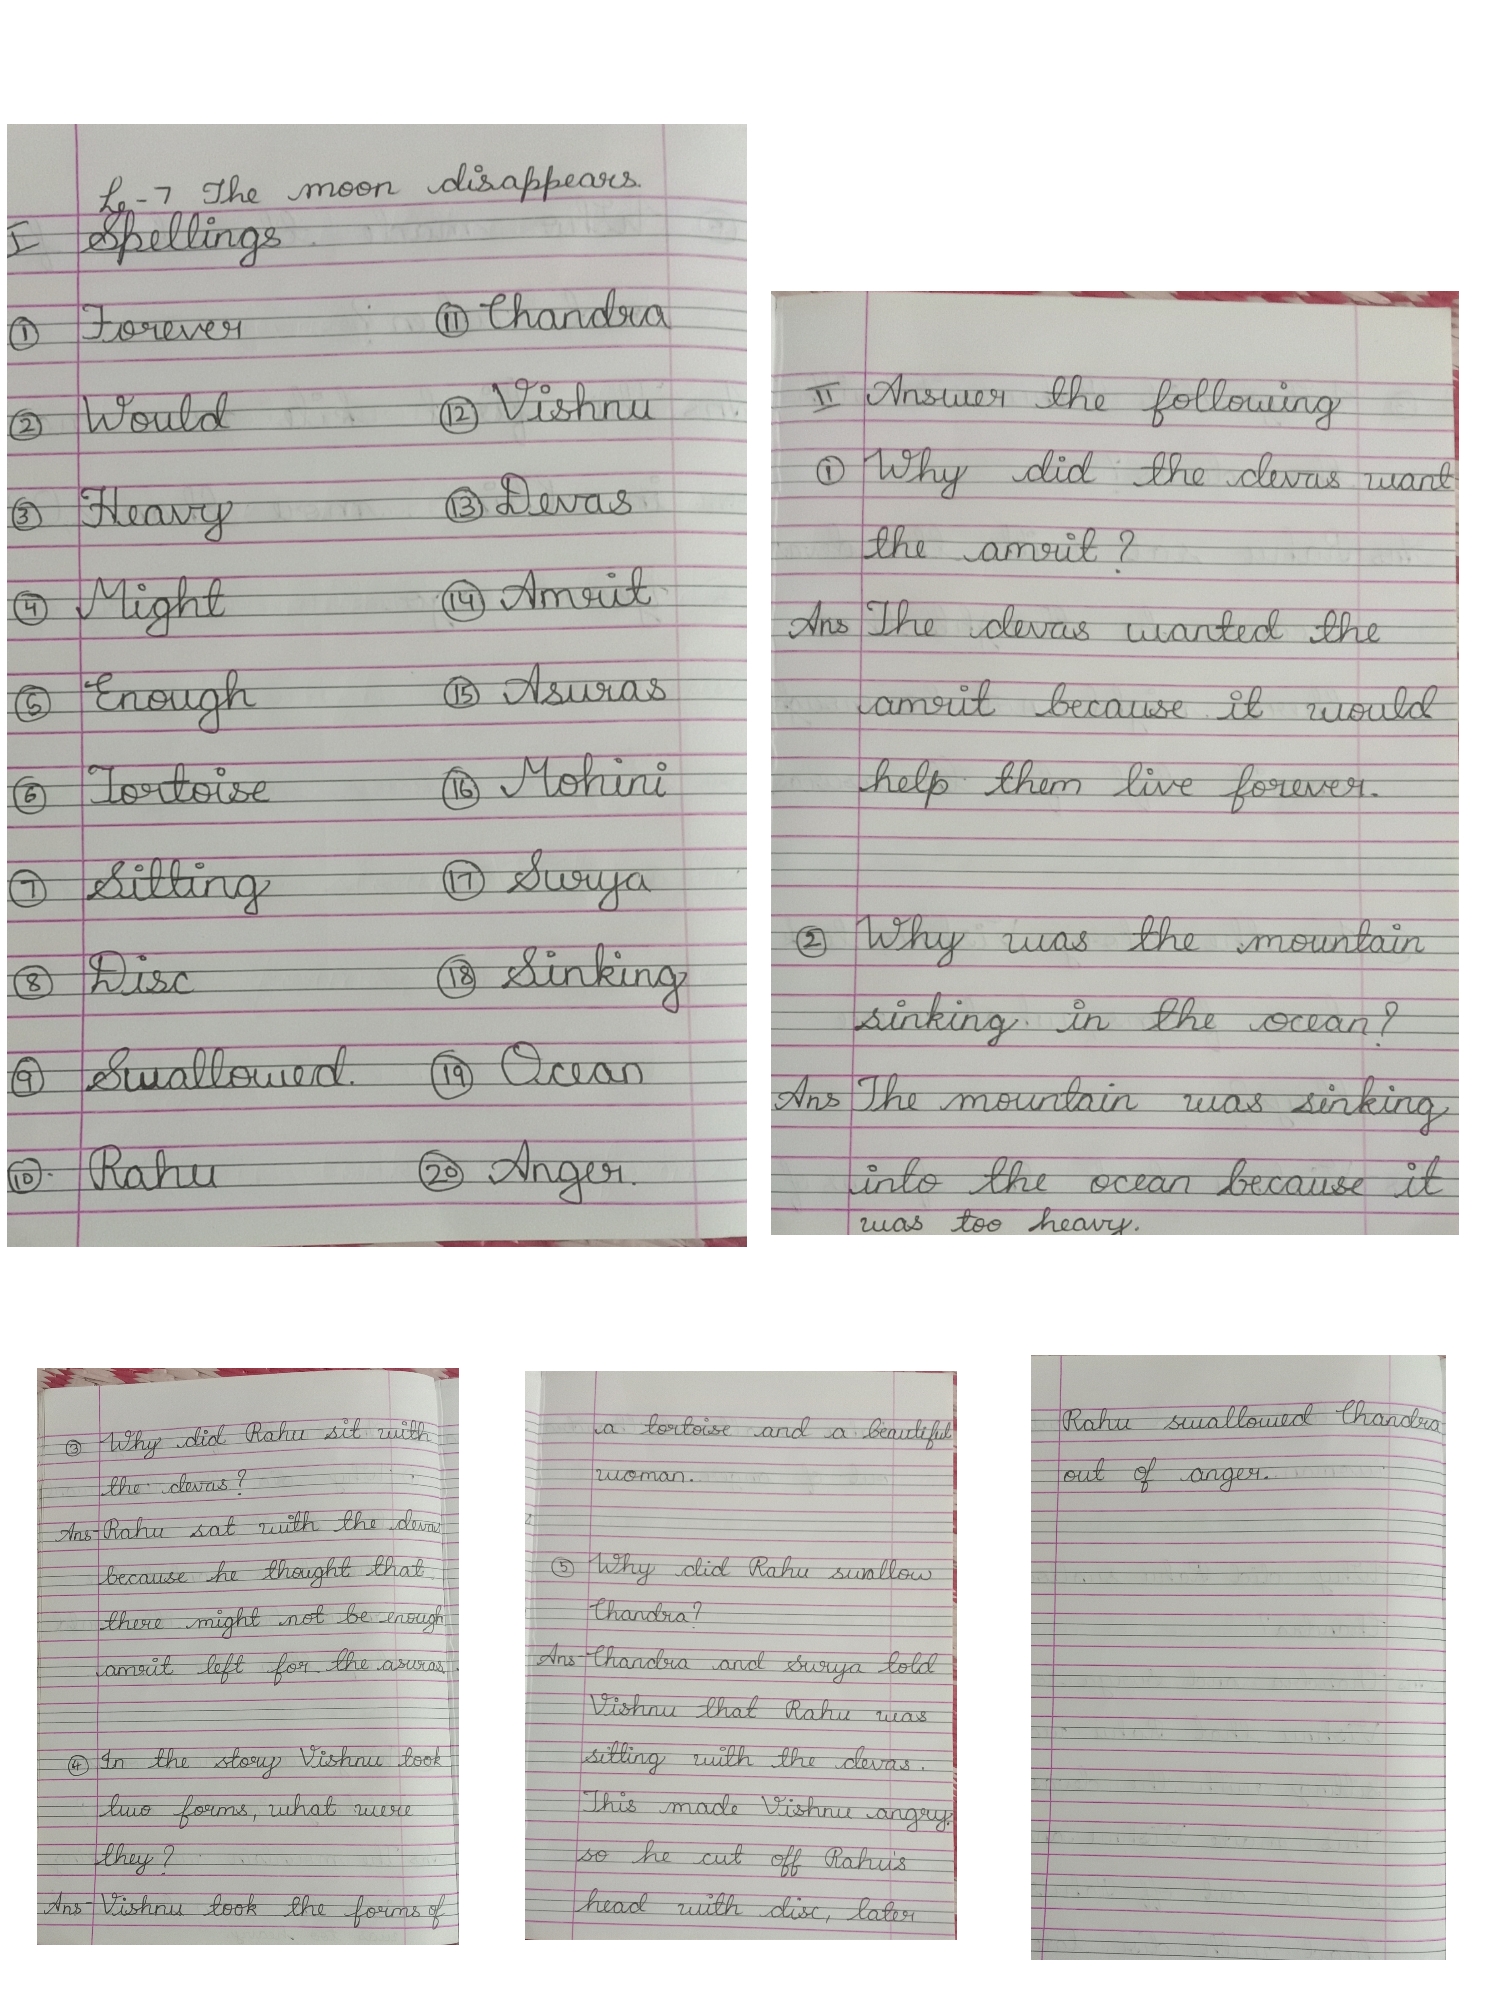 Ls-7 The moon disappears.
I Spellings
① Forever ⑪ Chandra
② Would ⑫ Vishnu
③ Heavy ⑬ Devas
④ Might ⑭ Amrit
⑤ Enough ⑮ Asuras
⑥ Tortoise ⑯ Mohini
⑦ Sitting ⑰ Surya
⑧ Disc ⑱ Sinking
⑨ Swallowed. ⑲ Ocean
⑩. Rahu ⑳ Anger.
II Answer the following
① Why did the devas want
the amrit?
Ans The devas wanted the
amrit because it would
help them live forever.
② Why was the mountain
sinking in the ocean?
Ans The mountain was sinking
into the ocean because it
was too heavy.
③ Why did Rahu sit with
the devas?
Ans- Rahu sat with the devas
because he thought that
there might not be enough
amrit left for the asuras.
④ In the story Vishnu took
two forms, what were
they?
Ans- Vishnu took the forms of
a tortoise and a beautiful
woman.
⑤ Why did Rahu swallow
Chandra?
Ans- Chandra and Surya told
Vishnu that Rahu was
sitting with the devas.
This made Vishnu angry.
so he cut off Rahu's
head with disc, later
Rahu swallowed Chandra
out of anger.